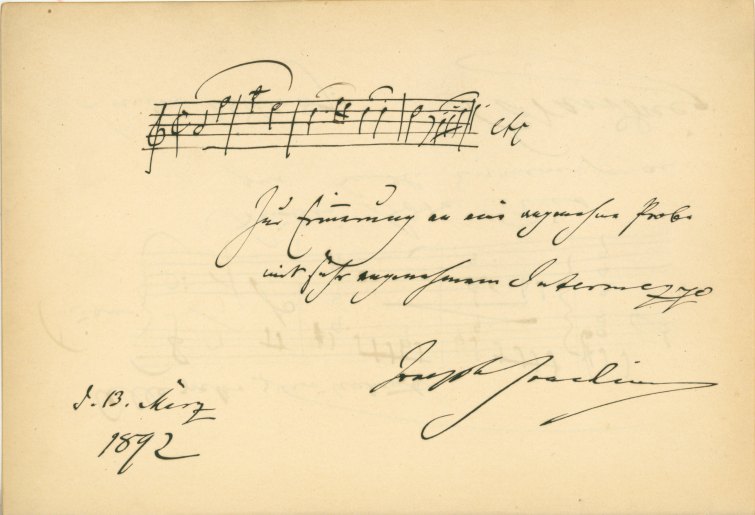 etc
Zur Erinnerung an eine angenehme Probe
mit sehr angenehmem Intermezzo
Joseph Joachim
d. 13. März
1892